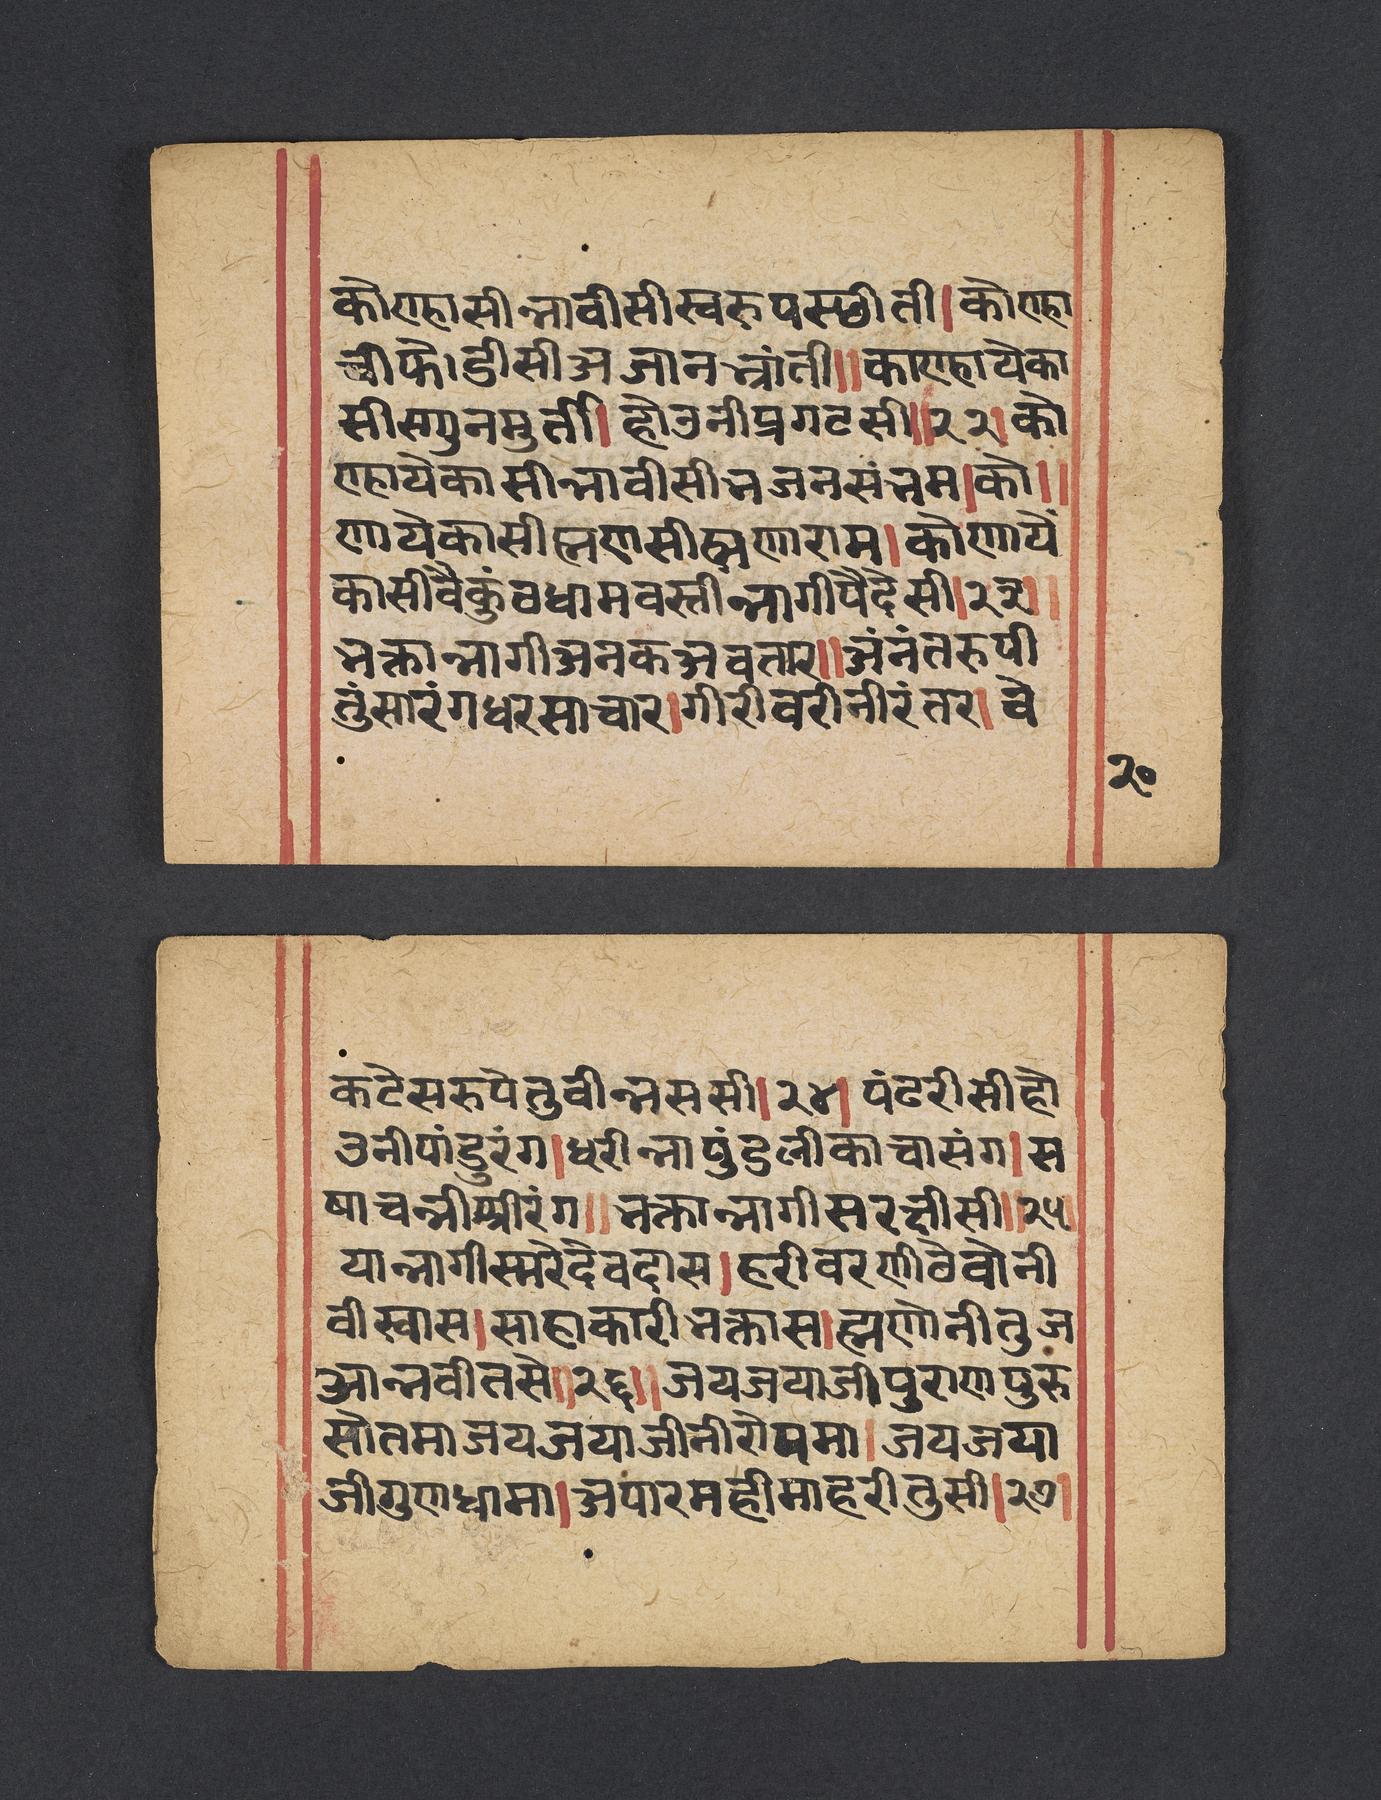 कोण्हासी न्नावीसी स्वरुपस्छीती। कोण्हा
ची फोडीसी अजान भ्रांती॥ काण्हायेका
सी सग्गुनमुर्ती। होउनी प्रगटसी॥२२। को
ण्हायेकासी न्नावीसी भजनसंभ्रम। को॥
णायेकासी ह्मणसी ह्मणाराम। कोणाये
कासी वैकुंठधाम वस्ती न्नागी पै देसी।२३॥
भक्तान्नागी अनक अवतार॥ अंनंतरुपी
तुं सारंगधर साचार। गीरीवरी नीरंतर। वे
२०
कटेसरुपे तु वीन्नससी।२४। पंढरीसी हो
उनी पांडुरंग। धरीन्ना पुंडलीकाचा संग। स
षा चन्नी स्रीरंग॥ भक्तान्नागी सरक्षीसी॥२५
यान्नागी स्मरे देवदास। हरीवरणी ठेवोनी
वीस्वास। साहाकारी भक्तास। ह्मणोनी तुज
आन्नवीतसे॥२६॥ जयजयाजी पुराणपुरु
सोतमा जयजयाजी नीरोपमा। जयजया
जी गुणधामा। अपार महीमा हरी तुसी।२७।